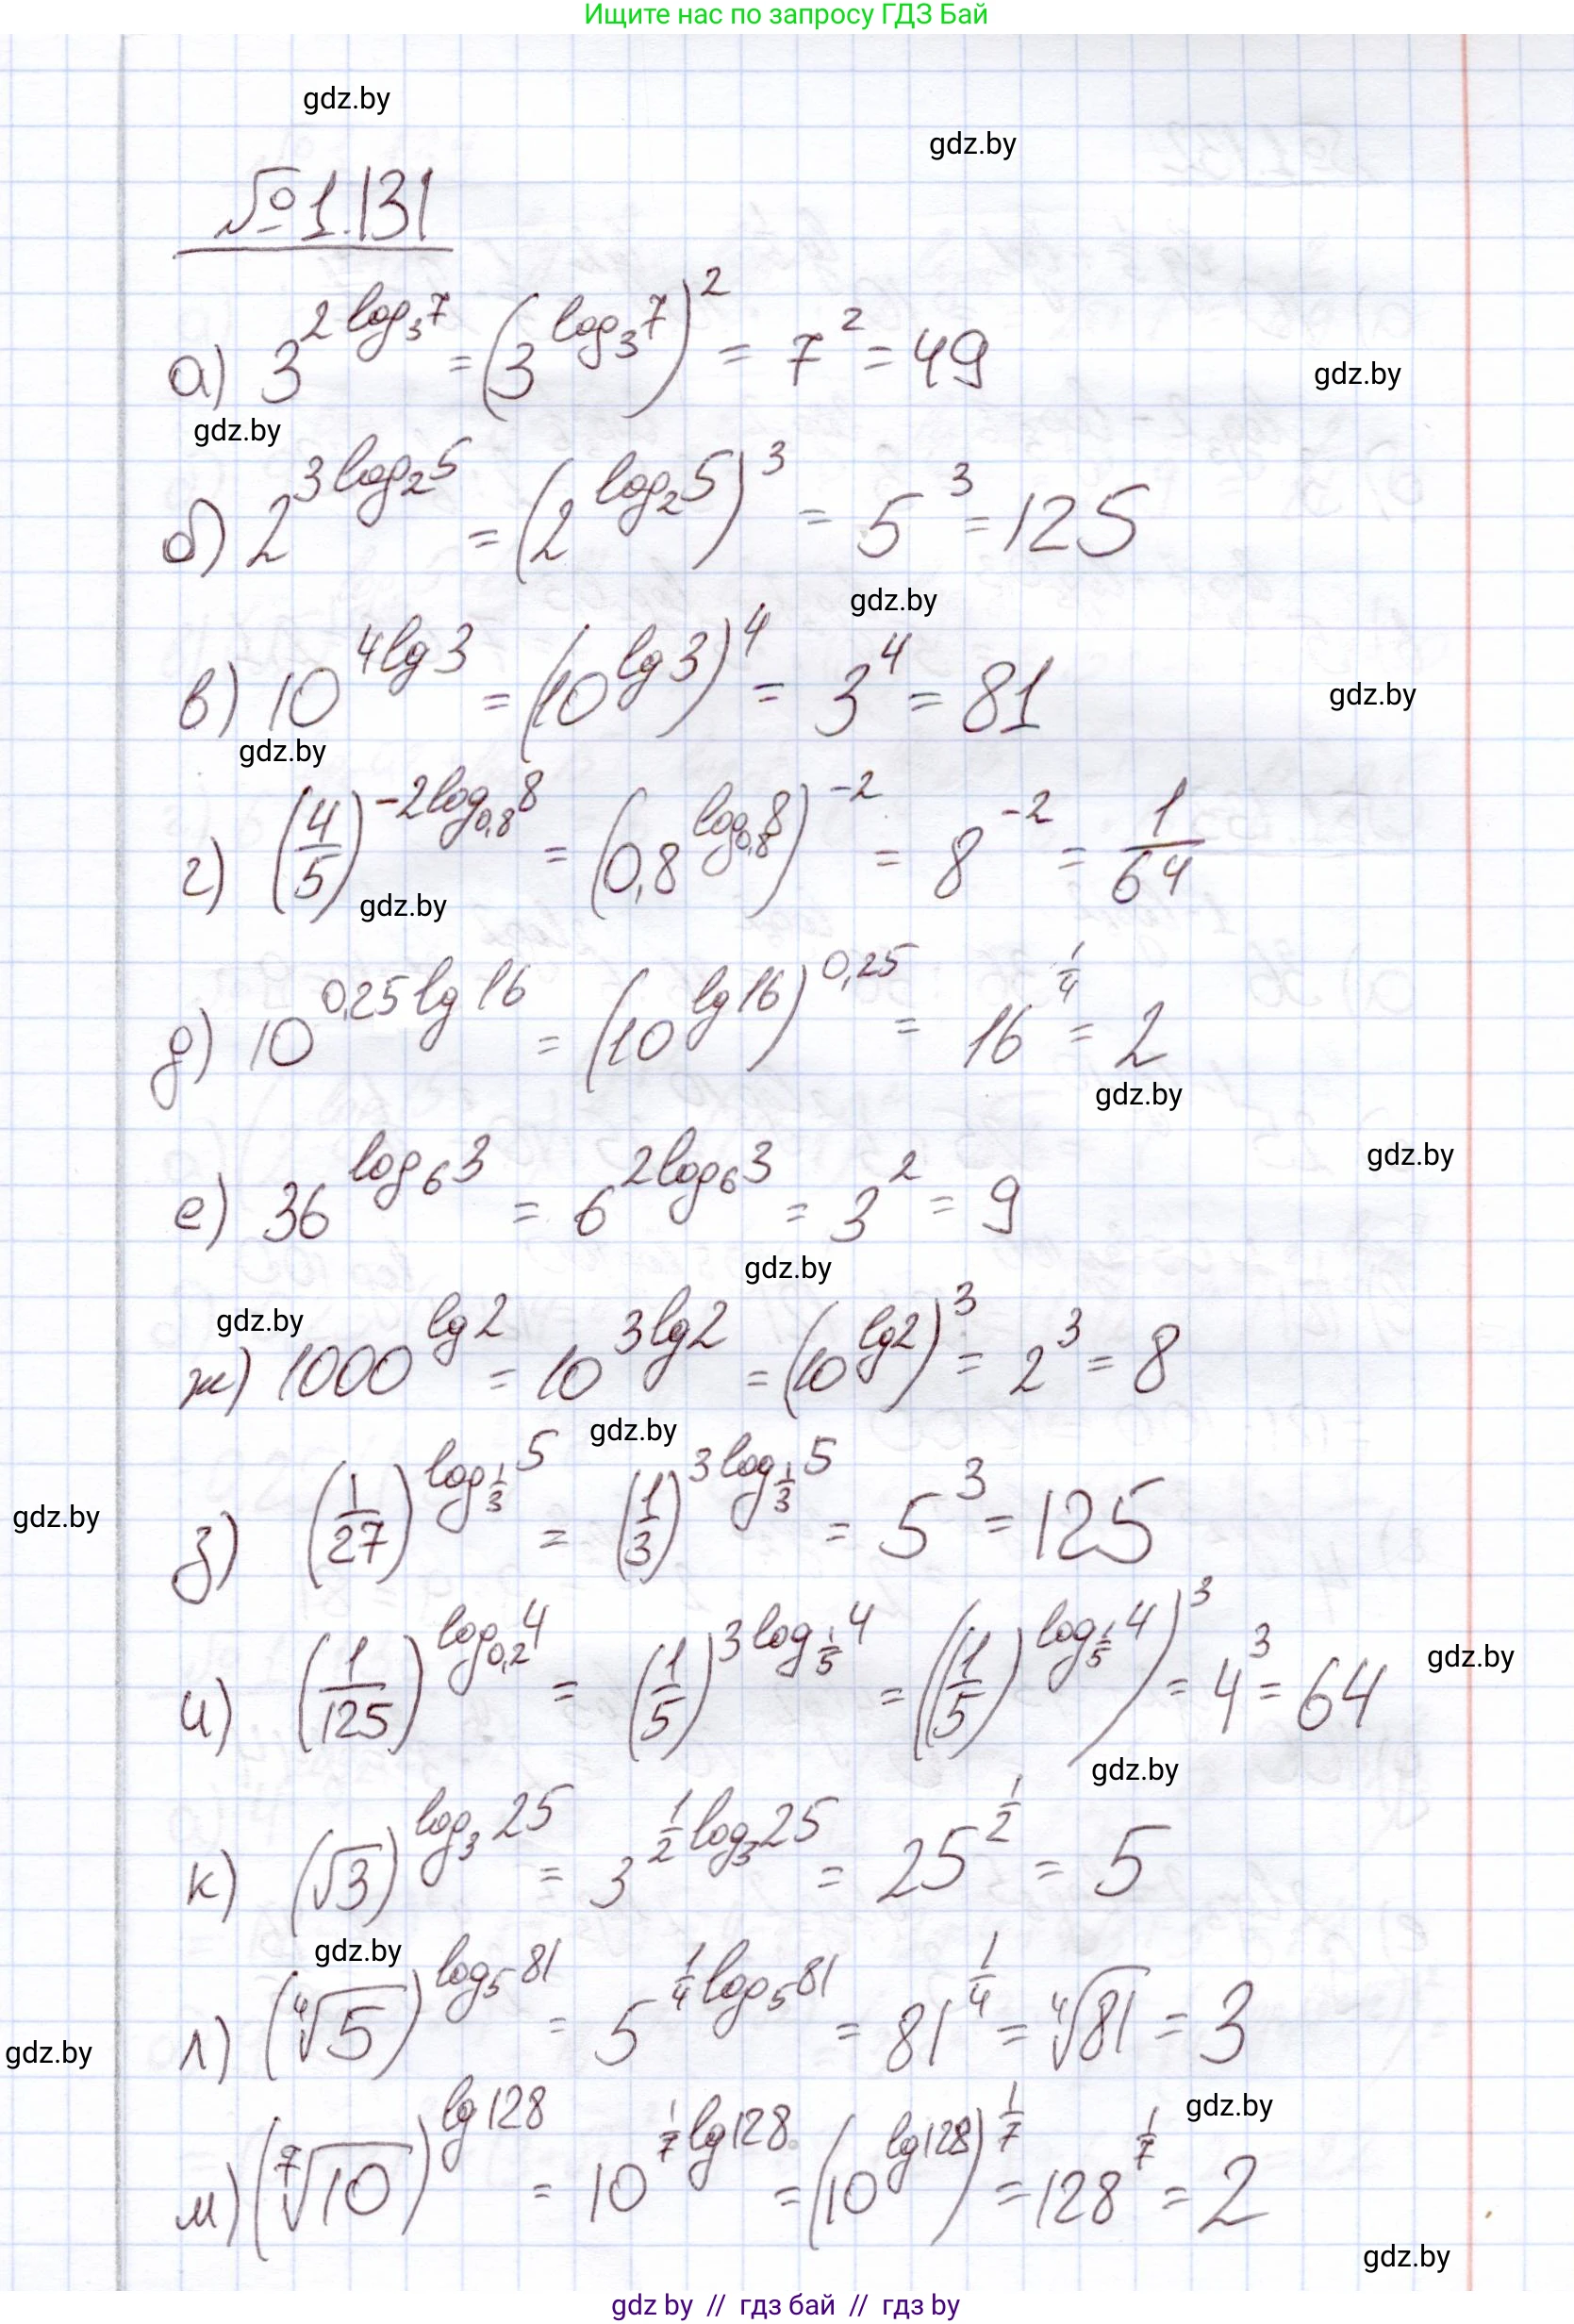 Ищите нас по запросу ГДЗ Бай
gdz.by
gdz.by
№1.131
а) 3^(2 log_3 7) = (3^(log_3 7))^2 = 7^2 = 49
gdz.by
gdz.by
б) 2^(3 log_2 5) = (2^(log_2 5))^3 = 5^3 = 125
gdz.by
в) 10^(4 lg 3) = (10^(lg 3))^4 = 3^4 = 81
gdz.by
gdz.by
г) (4/5)^(-2 log_0,8 8) = (0,8^(log_0,8 8))^(-2) = 8^(-2) = 1/64
gdz.by
д) 10^(0,25 lg 16) = (10^(lg 16))^(0,25) = 16^(1/4) = 2
gdz.by
gdz.by
е) 36^(log_6 3) = 6^(2 log_6 3) = 3^2 = 9
gdz.by
gdz.by
ж) 1000^(lg 2) = 10^(3 lg 2) = (10^(lg 2))^3 = 2^3 = 8
gdz.by
з) (1/27)^(log_(1/3) 5) = (1/3)^(3 log_(1/3) 5) = 5^3 = 125
gdz.by
и) (1/125)^(log_0,2 4) = (1/5)^(3 log_(1/5) 4) = ((1/5)^(log_(1/5) 4))^3 = 4^3 = 64
gdz.by
gdz.by
к) (√3)^(log_3 25) = 3^(1/2 log_3 25) = 25^(1/2) = 5
gdz.by
л) (⁴√5)^(log_5 81) = 5^(1/4 log_5 81) = 81^(1/4) = ⁴√81 = 3
gdz.by
gdz.by
м) (⁷√10)^(lg 128) = 10^(1/7 lg 128) = (10^(lg 128))^(1/7) = 128^(1/7) = 2
gdz.by
gdz by // гдз бай // гдз by